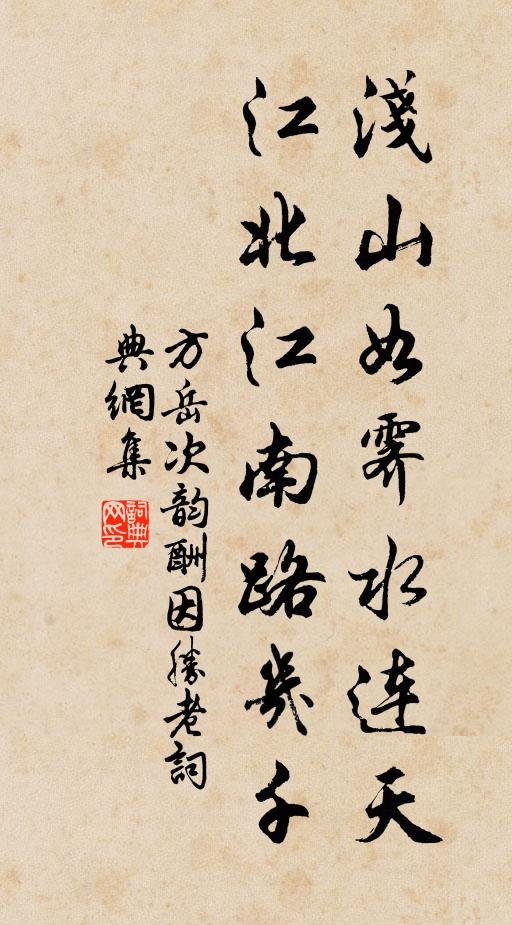 淺山如霽水連天
江北江南路幾千
方岳次韵酬因勝老詞
典網集
詞典
网印